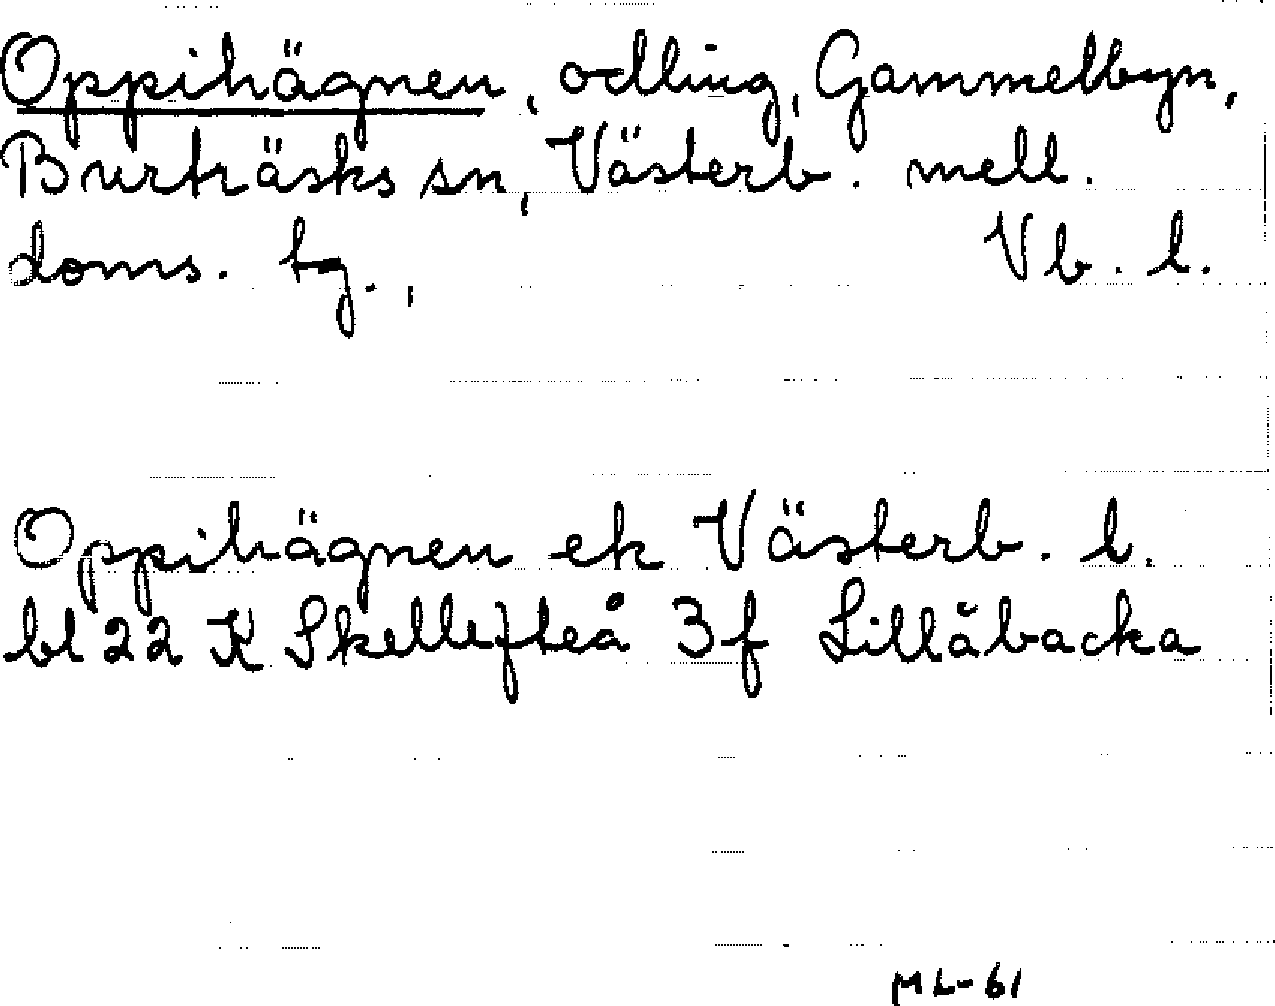 Oppihägnen, odling, Gammelbyn,
Burträsks sn, Västerb. mell.
doms. tg., Vb. l.
Oppihägnen ek Västerb. l.
bl 22 K Skellefteå 3f Lillåbacka
ML-61